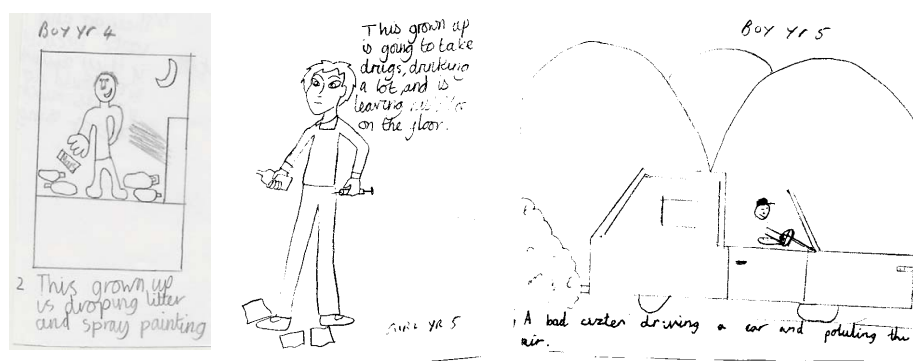 Boy Yr 4
2 This grown up
is droping litter
and spray painting
This grown up
is going to take
drugs, drinking
a lot and is
leaving
on the floor.
GIRL YR 5
Boy Yr 5
A bad driving a car and poluting the
air.